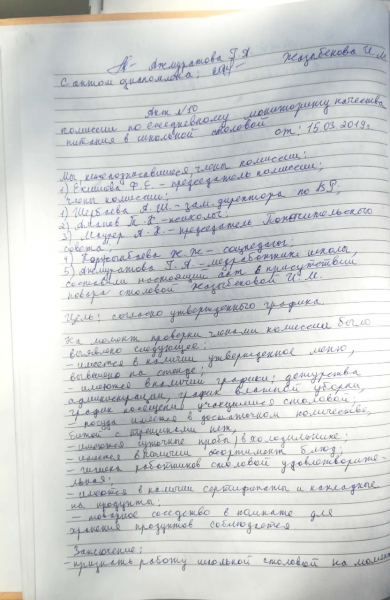 Ажмуратова Г. А Жазабекова И. М.
С актом ознакомлена:
Акт №10
комиссии по ежедневному мониторингу качества
питания в школьной столовой
от: 15.03.2019г.
Мы, нижеподписавшиеся, члены комиссии:
1) Екимова Ф. Е - председатель комиссии;
члены комиссии:
1) А. Ш - зам. директора по ВР;
2) - психолог;
3) Маурер А. К - председатель Попечительского
совета;
4) Ж. Ж - соцпедагог;
5) Ажмуратова Г. А - медработник школы,
составили настоящий акт в присутствии
повара столовой Жазабековой И. М.
Цель: согласно утвержденного графика
На момент проверки членами комиссии было
выявлено следующее:
- имеется в наличии утвержденное меню,
вывешено на стенде;
- имеются в наличии графики: дежурства
администрации, график влажной уборки,
график посещения учащимися столовой;
- посуда имеется в достаточном количестве,
битой с трещинами нет;
- имеются суточные пробы в холодильнике;
- имеется в наличии ассортимент блюд;
- гигиена работников столовой удовлетворите-
льная;
- имеются в наличии сертификаты и накладные
на продукты;
- товарное соседство в комнате для
хранения продуктов соблюдается
Заключение:
- признать работу школьной столовой на момент